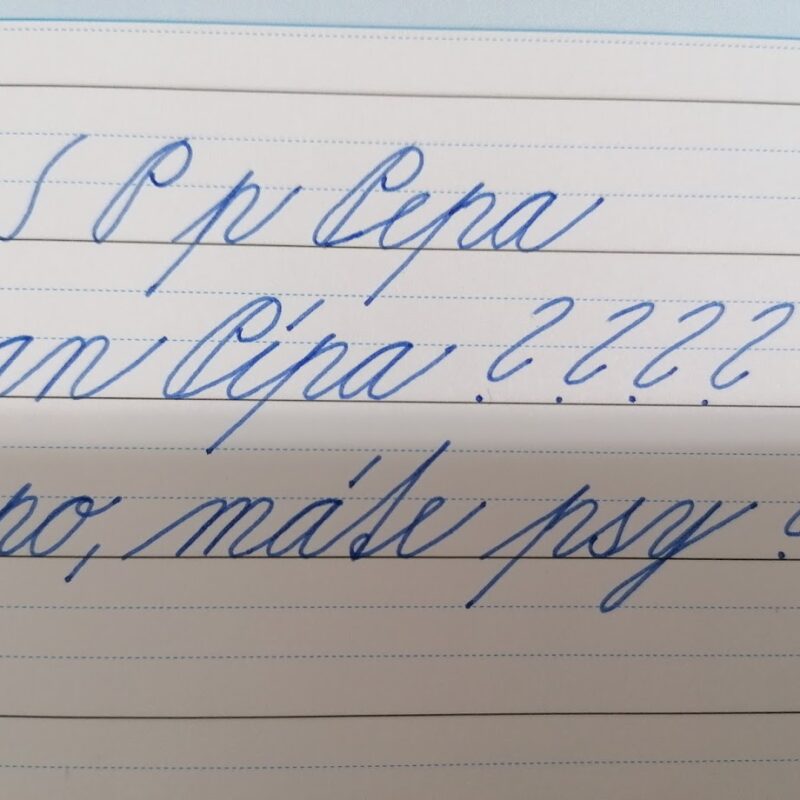 S P p Pepa
an Pípa ? ? ? ?
po, máte psy ?